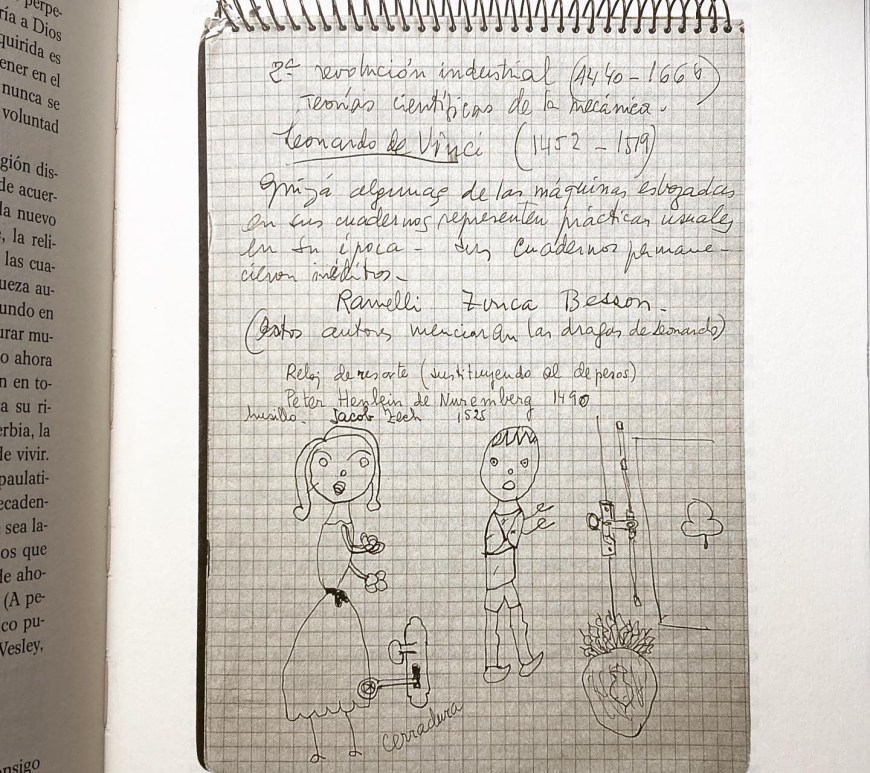 perpe-
ría a Dios
quirida es
ener en el
nunca se
voluntad
gión dis-
de acuer-
la nuevo
, la reli-
las cua-
ueza au-
undo en
urar mu-
o ahora
n en to-
a su ri-
erbia, la
de vivir.
paulati-
ecaden-
sea la-
os que
de aho-
(A pe-
co pu-
Wesley,
onsigo
2ª revolución industrial (1440 - 1666)
Teorías científicas de la mecánica.
Leonardo de Vinci (1452 - 1519)
Quizá algunas de las máquinas esbozadas
en sus cuadernos representen prácticas usuales
en su época - sus cuadernos permane-
cieron inéditos -
Ramelli Zonca Besson.
(estos autores mencionan las dragas de Leonardo)
Reloj de resorte (sustituyendo al de pesos)
Peter Henlein de Nuremberg 1490
husillo. Jacob Zech 1525
cerradura